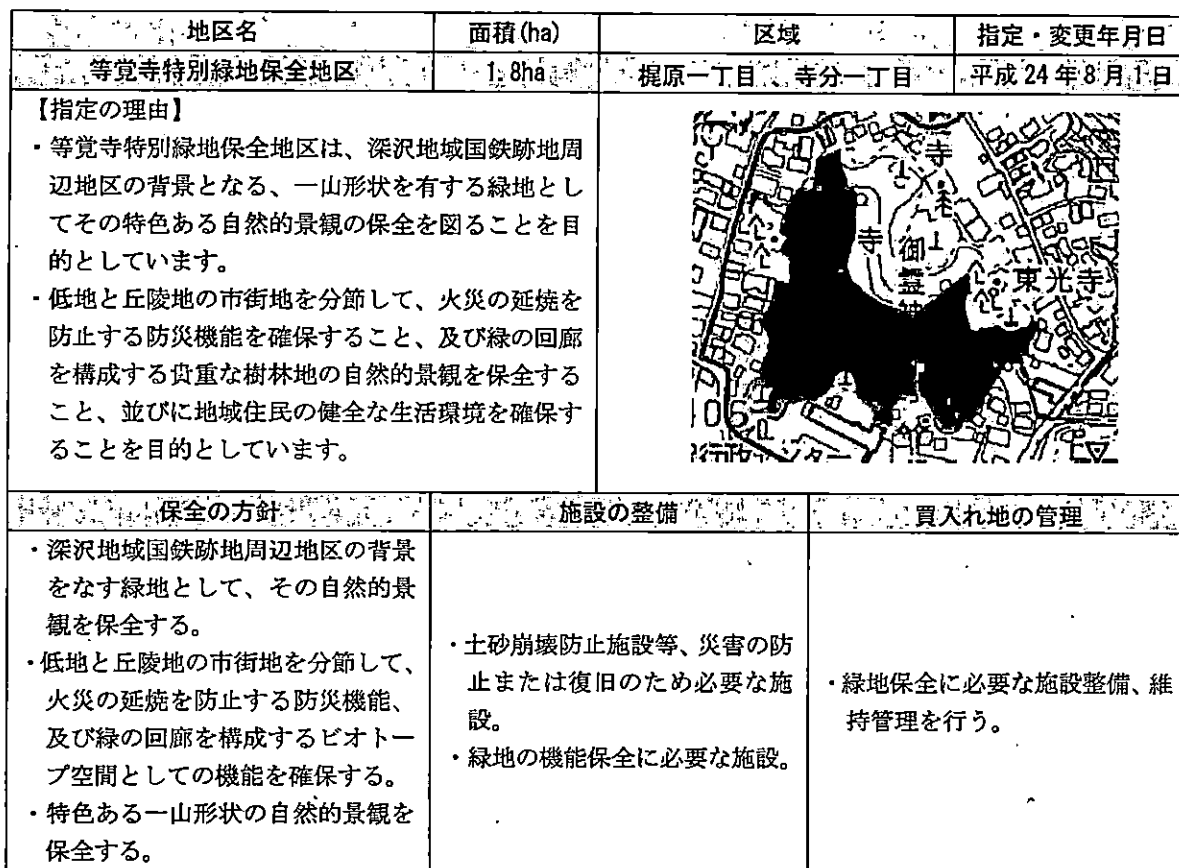 地区名 面積(ha) 区域 指定・変更年月日
等覚寺特別緑地保全地区 1.8ha 梶原一丁目、寺分一丁目 平成24年8月1日
【指定の理由】
・等覚寺特別緑地保全地区は、深沢地域国鉄跡地周
辺地区の背景となる、一山形状を有する緑地とし
てその特色ある自然的景観の保全を図ることを目
的としています。
・低地と丘陵地の市街地を分節して、火災の延焼を
防止する防災機能を確保すること、及び緑の回廊
を構成する貴重な樹林地の自然的景観を保全する
こと、並びに地域住民の健全な生活環境を確保す
ることを目的としています。
寺
寺
御霊神
東光寺
行政センター
保全の方針 施設の整備 買入れ地の管理
・深沢地域国鉄跡地周辺地区の背景
をなす緑地として、その自然的景
観を保全する。
・低地と丘陵地の市街地を分節して、
火災の延焼を防止する防災機能、
及び緑の回廊を構成するビオトー
プ空間としての機能を確保する。
・特色ある一山形状の自然的景観を
保全する。
・土砂崩壊防止施設等、災害の防
止または復旧のため必要な施
設。
・緑地の機能保全に必要な施設。
・緑地保全に必要な施設整備、維
持管理を行う。